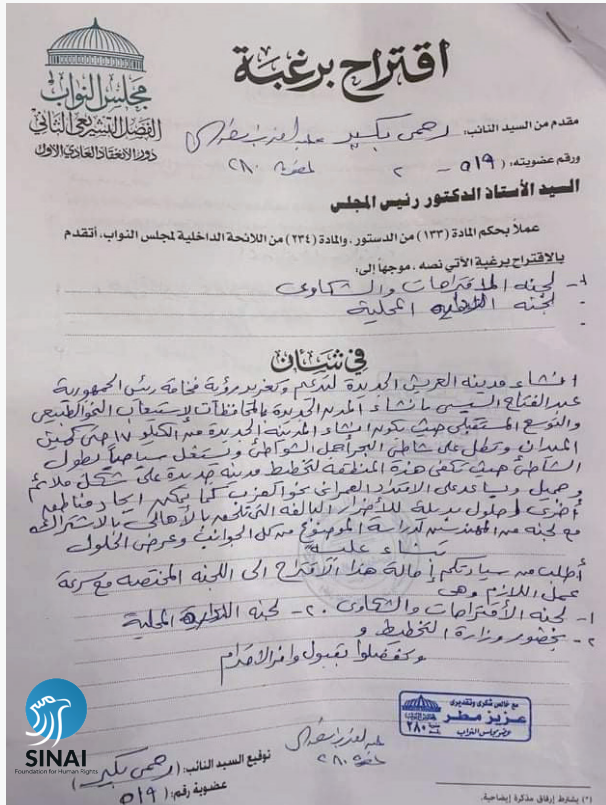 اقتراح برغبة
مجلس النواب
الفصل التشريعي الثاني
دور الانعقاد العادي الأول
مقدم من السيد النائب: رحمى بكير
ورقم عضويته: ( ٥١٩ - ٢ ٢٨٠
السيد الأستاذ الدكتور رئيس المجلس
عملاً بحكم المادة (١٣٣) من الدستور، والمادة (٢٣٤) من اللائحة الداخلية لمجلس النواب، أتقدم
بالاقتراح برغبة الآتي نصه، موجهاً إلى:
١- لجنه الاقتراحات والشكاوى
لجنه المحلية
في شأن
انشاء مدينه العريش الجديدة لتدعم وتعزيز رؤية فخامة رئس الجمهورية
عبد الفتاح السيسى بانشاء المدن الجديدة بالمحافظات لإستيعاب النمو الطبيعى
والتوسع المستقبلى حيث يكون انشاء المدينه الجديدة من الكيلو ١٧ حتى كمين
الميدان وتطل على شاطئ البحر أجمل الشواطئ وتستغل سياحيا بطول
الشاطئ حيث تكفى هذة المنطقه لتخطيط مدينه جديدة على شكل ملائم
وجميل ويساعد على الامتداد العمرانى نحو الغرب كما يمكن ايجاد مناطق
أخرى لحلول بديلة للأضرار البالغه التى تلحق بالأهالى بالاشتراك
مع لجنه من المهندسين لدراسة الموضوع من كل الجوانب وعرض الحلول
بناء عليه
أطلب من سيادتكم إحالة هذا الاقتراح الى اللجنه المختصه مع سرعة
عمل اللازم وهى
١- لجنة الأقتراحات والشكاوى ٢- لجنه المحلية
٣- بحضور وزارة التخطيط و
وتفضلوا بقبول وافر الاحترام
مع خالص شكرى وتقديرى
عزيز مطر
عضو مجلس النواب
٢٨٠
٢٨٠
توقيع السيد النائب: ( رحمى بكير )
عضوية رقم: ( ٥١٩
(*) يشترط إرفاق مذكرة إيضاحية.
SINAI
Foundation for Human Rights